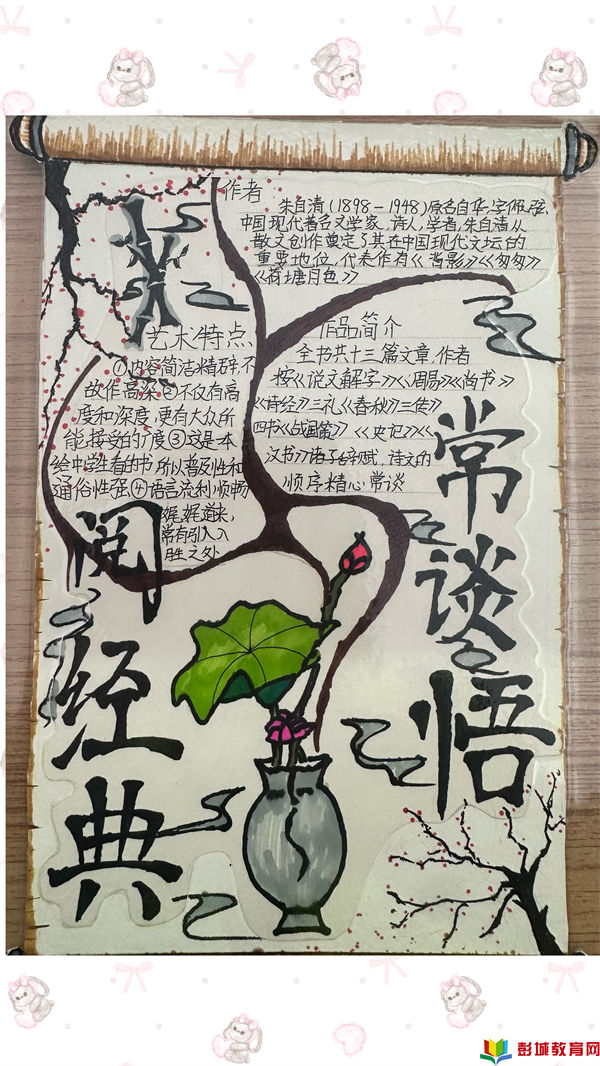 作者
朱自清(1898-1948)原名自华,字佩弦,
中国现代著名文学家,诗人,学者,朱自清从
散文创作奠定了其在中国现代文坛的
重要地位,代表作有《背影》《匆匆》
《荷塘月色》
艺术特点
①内容简洁精辟,不
故作高深②不仅有高
度和深度,更有大众所
能接受的广度③这是本
给中学生看的书所以普及性和
通俗性强④语言流利顺畅
娓娓道来,
常有引人入
胜之处
作品简介
全书共十三篇文章,作者
按《说文解字》《周易》《尚书》
《诗经》三礼《春秋》三传》
四书《战国策》《史记》《
汉书》诸子辞赋,诗文的
顺序精心常谈
阅经典
常谈悟
彭城教育网